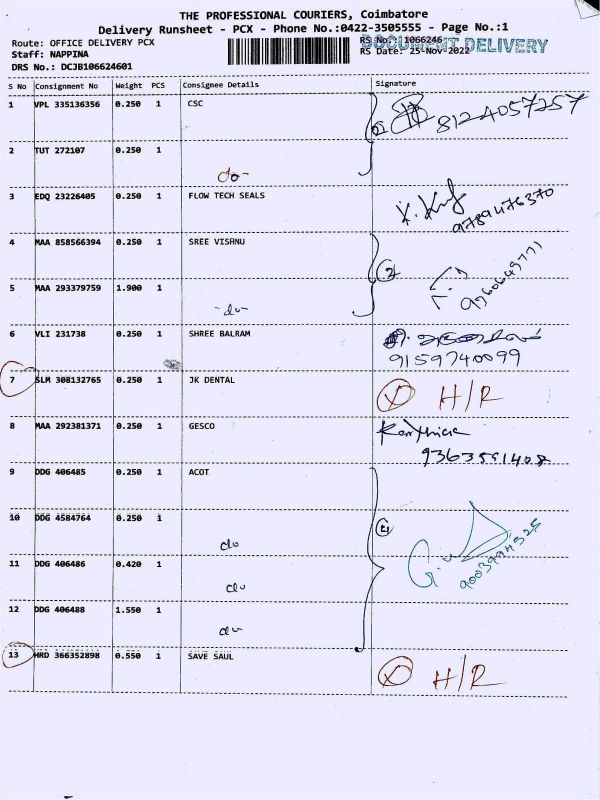 THE PROFESSIONAL COURIERS, Coimbatore
Delivery Runsheet - PCX - Phone No.:0422-3505555 - Page No.:1
Route: OFFICE DELIVERY PCX
RS No.: 1066246
DOCUMENT DELIVERY
Staff: NAPPINA
RS Date: 25-Nov-2022
DRS No.: DCJB106624601
S No Consignment No Weight PCS Consignee Details Signature
1 VPL 335136356 0.250 1 CSC 8124057257
2 TUT 272107 0.250 1
do-
3 EDQ 23226405 0.250 1 FLOW TECH SEALS
9789476370
4 MAA 858566394 0.250 1 SREE VISHNU
2
5 MAA 293379759 1.900 1
-do-
6 VLI 231738 0.250 1 SHREE BALRAM
9159740099
7 SLM 308132765 0.250 1 JK DENTAL
X H/R
8 MAA 292381371 0.250 1 GESCO
9363591408
9 DDG 406485 0.250 1 ACOT
10 DDG 4584764 0.250 1
do
11 DDG 406486 0.420 1
do
12 DDG 406488 1.550 1
do
13 HRD 366352898 0.550 1 SAVE SAUL
X H/R